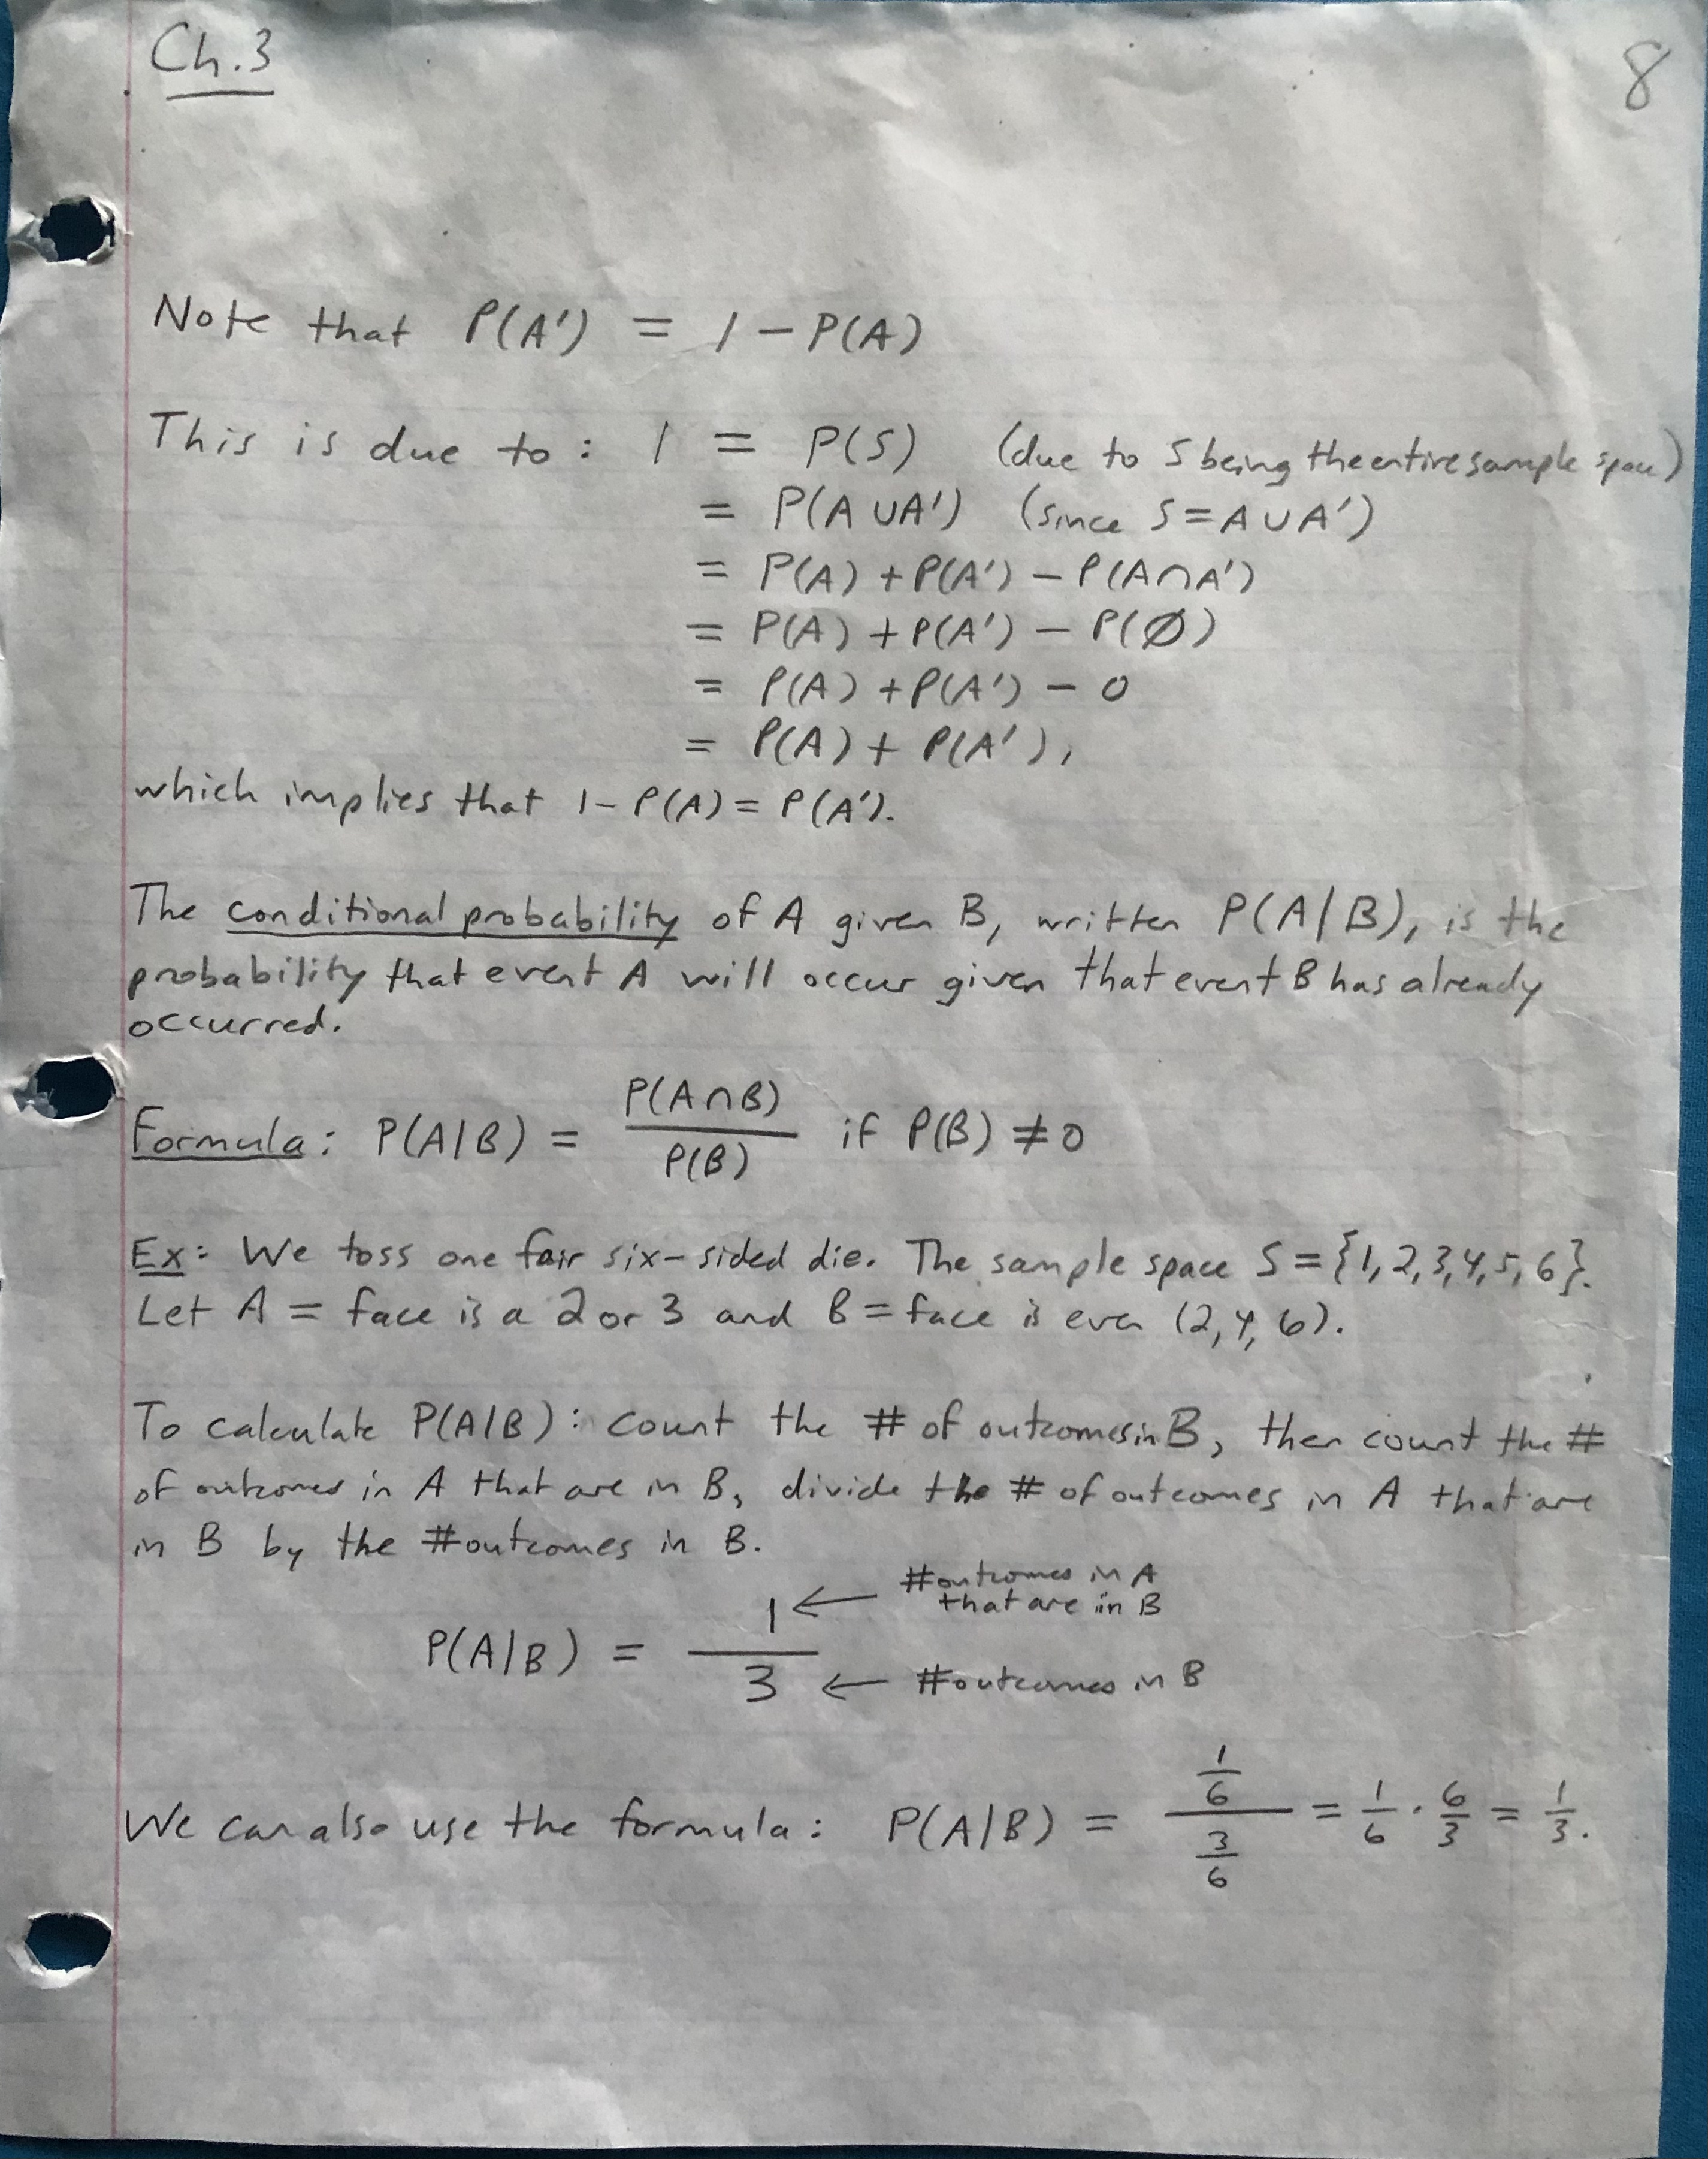 Ch.3
8
Note that P(A') = 1 - P(A)
This is due to: 1 = P(S) (due to S being the entire sample space)
= P(A ∪ A') (since S = A ∪ A')
= P(A) + P(A') - P(A ∩ A')
= P(A) + P(A') - P(∅)
= P(A) + P(A') - 0
= P(A) + P(A'),
which implies that 1 - P(A) = P(A').
The conditional probability of A given B, written P(A|B), is the
probability that event A will occur given that event B has already
occurred.
Formula: P(A|B) = P(A∩B) / P(B) if P(B) ≠ 0
Ex: We toss one fair six-sided die. The sample space S = {1,2,3,4,5,6}.
Let A = face is a 2 or 3 and B = face is even (2,4,6).
To calculate P(A|B): count the # of outcomes in B, then count the #
of outcomes in A that are in B, divide the # of outcomes in A that are
in B by the # outcomes in B.
P(A|B) = 1 / 3
← # outcomes in A
that are in B
← # outcomes in B
We can also use the formula: P(A|B) = (1/6) / (3/6) = 1/6 · 6/3 = 1/3.